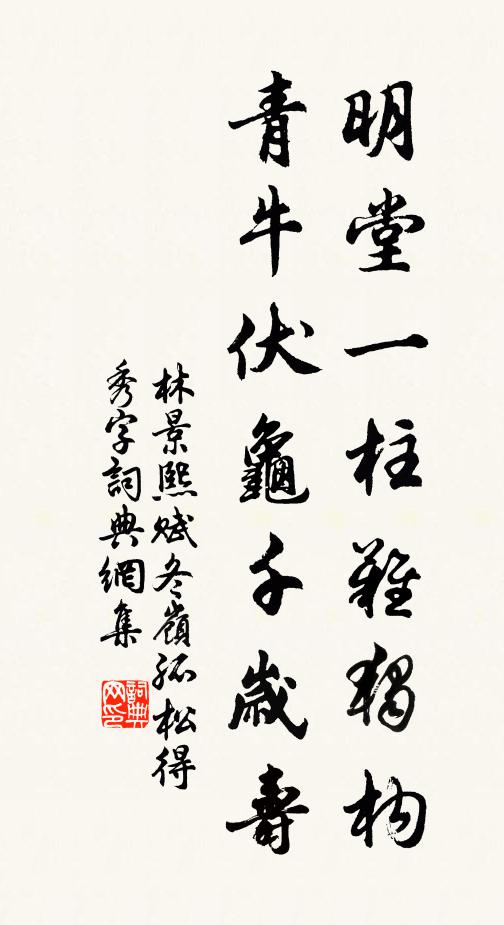 明堂一柱難獨构
青牛伏龜千歲壽
林景熙賦冬嶺孤松得
秀字詞典網集
詞典网印